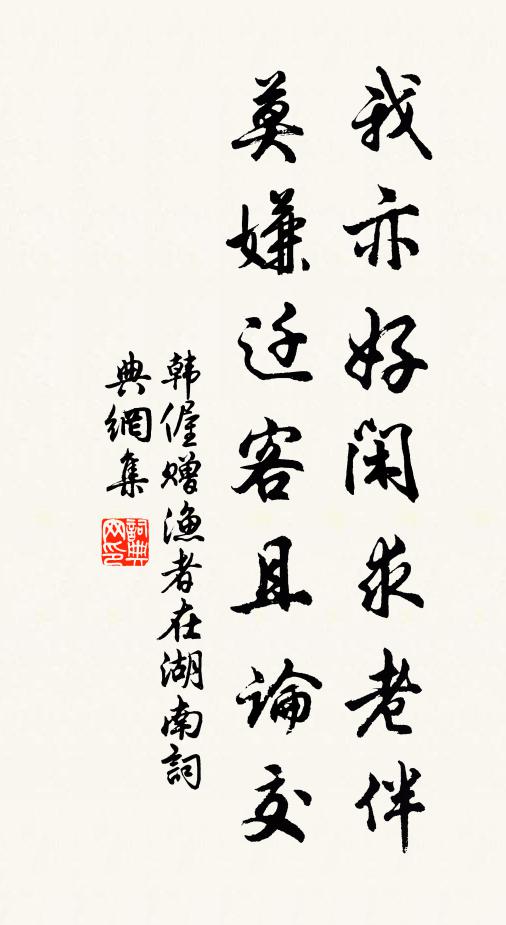 我亦好闲求老伴
莫嫌迁客且论交
韩偓赠渔者在湖南词
典網集
詞典网印